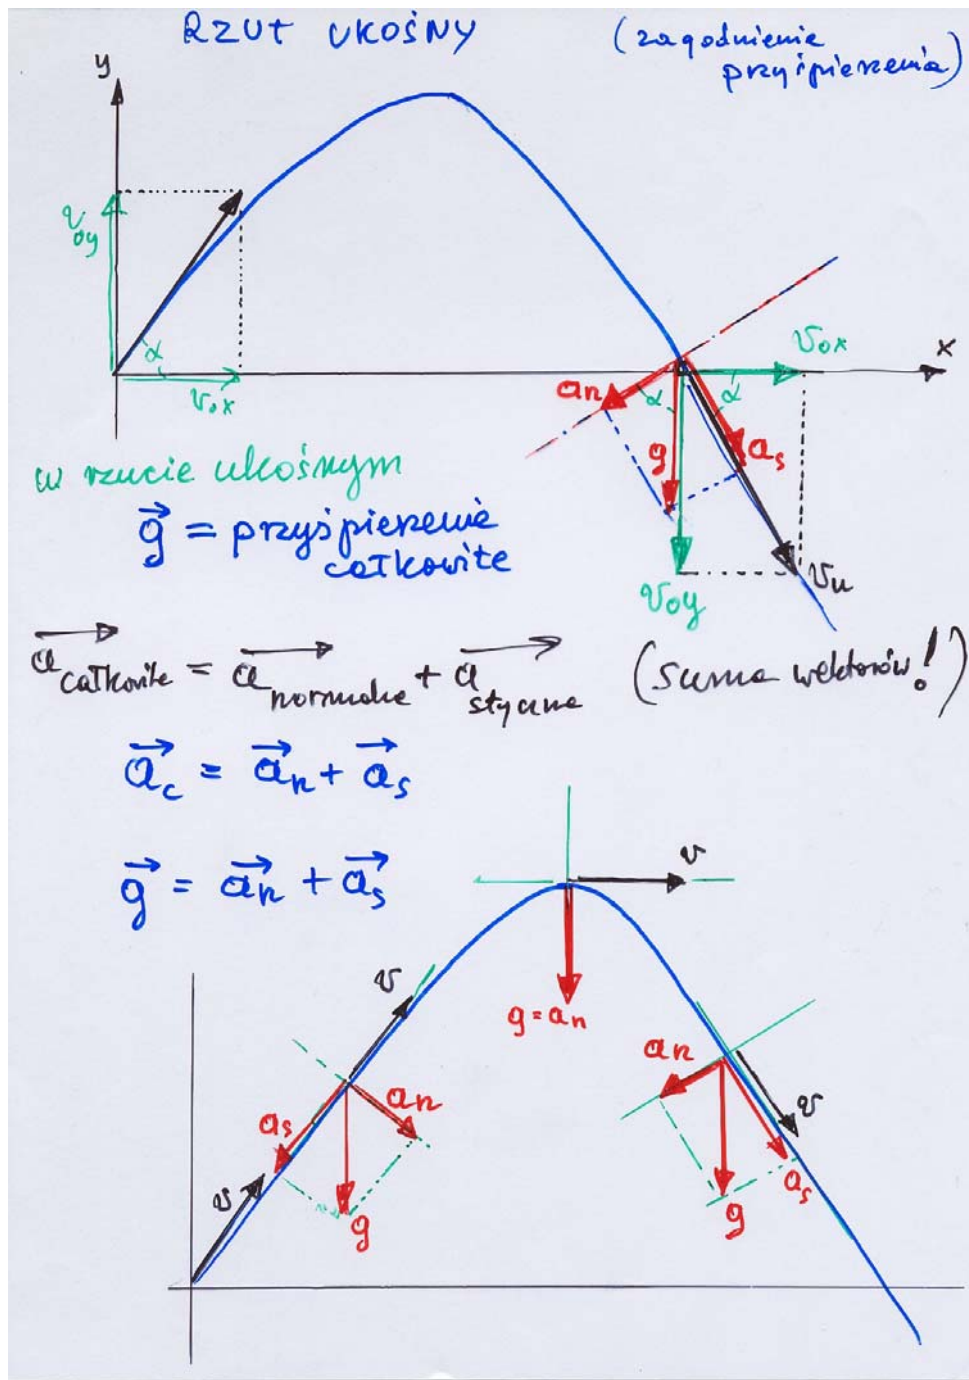 RZUT UKOŚNY
(zagadnienie
przyśpieszenia)
y
v₀y
α
v₀x
v₀x
x
an
α
α
g
as
v₀y
vu
w rzucie ukośnym
g⃗ = przyśpieszenie
całkowite
a⃗ całkowite = a⃗ normalne + a⃗ styczne (suma wektorów!)
a⃗c = a⃗n + a⃗s
g⃗ = a⃗n + a⃗s
v
g = an
v
as
an
v
g
an
v
as
g